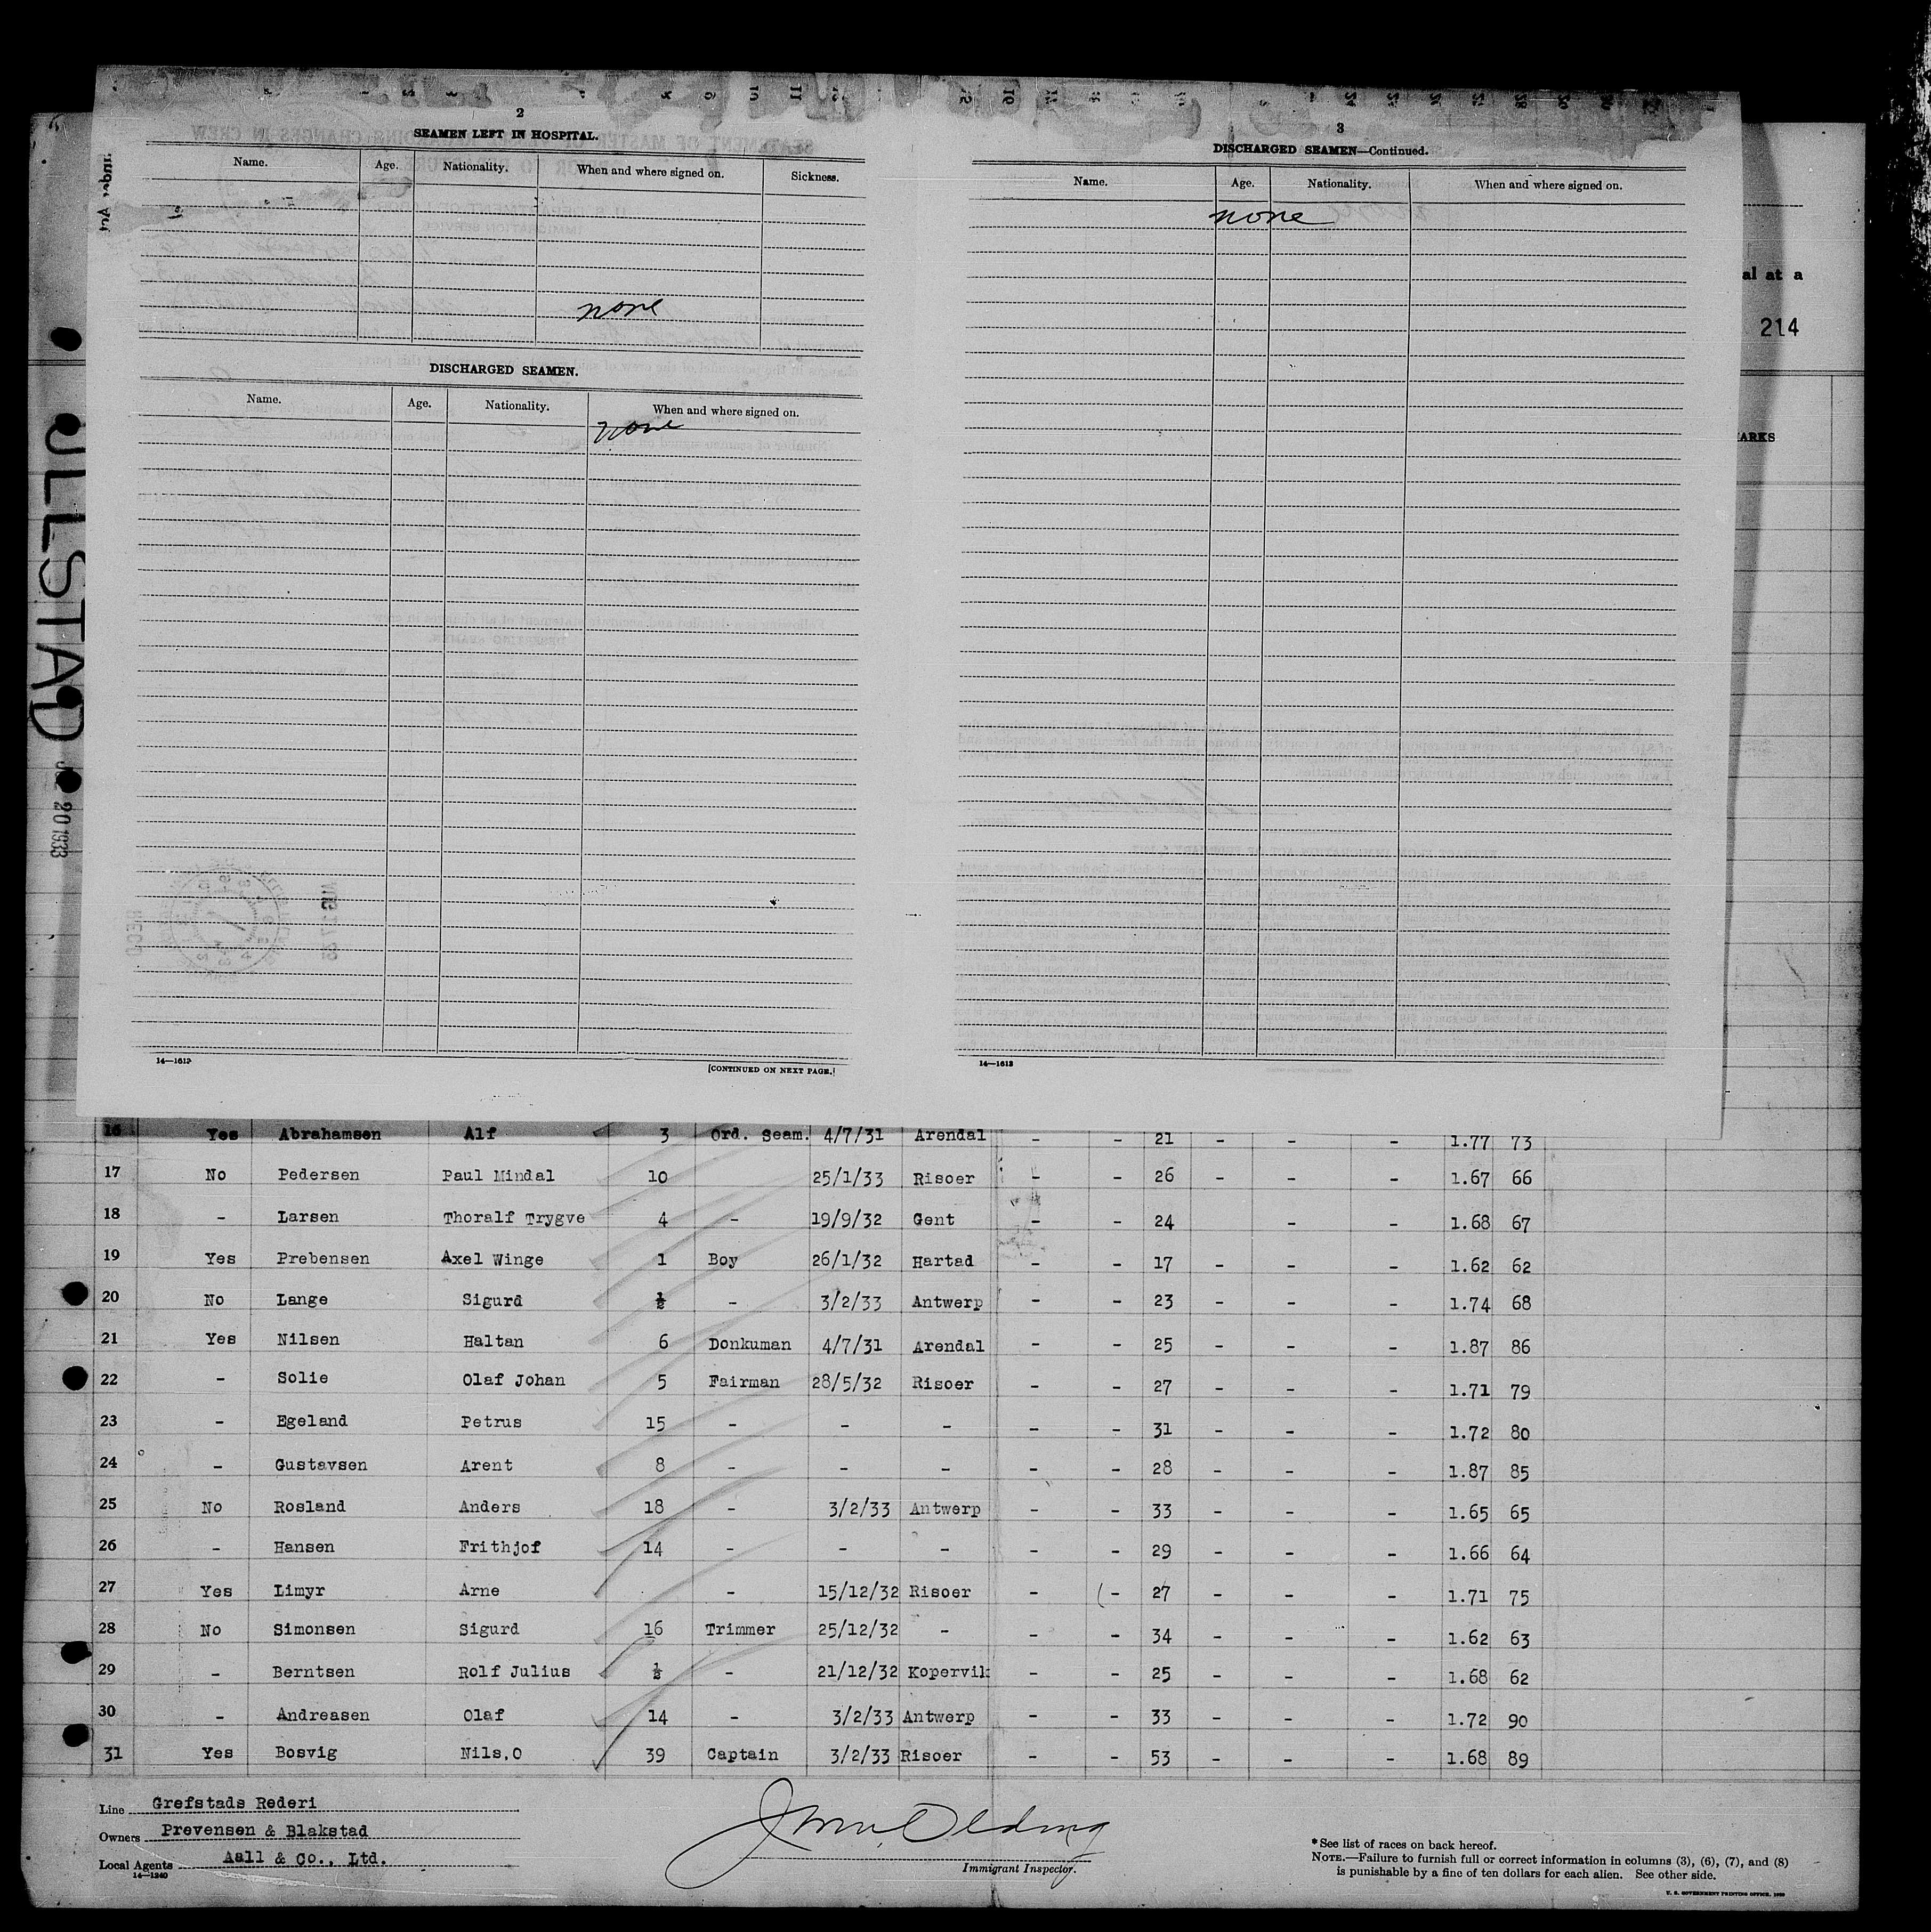 2
SEAMEN LEFT IN HOSPITAL.
Name. Age. Nationality. When and where signed on. Sickness.
none
DISCHARGED SEAMEN.
Name. Age. Nationality. When and where signed on.
none
14—1612
[CONTINUED ON NEXT PAGE.]
3
DISCHARGED SEAMEN—Continued.
Name. Age. Nationality. When and where signed on.
none
14—1612
al at a
214
ARKS
20 1933
16 Yes Abrahamsen Alf 3 Ord. Seam. 4/7/31 Arendal - - 21 - - - 1.77 73
17 No Pedersen Paul Mindal 10 25/1/33 Risoer - - 26 - - - 1.67 66
18 - Larsen Thoralf Trygve 4 - 19/9/32 Gent - - 24 - - 1.68 67
19 Yes Prebensen Axel Winge 1 Boy 26/1/32 Hartad - - 17 - - - 1.62 62
20 No Lange Sigurd ½ - 3/2/33 Antwerp - - 23 - - - 1.74 68
21 Yes Nilsen Haltan 6 Donkuman 4/7/31 Arendal - - 25 - - - 1.87 86
22 - Solie Olaf Johan 5 Fairman 28/5/32 Risoer - - 27 - - - 1.71 79
23 - Egeland Petrus 15 - - - - - 31 - - - 1.72 80
24 - Gustavsen Arent 8 - - - - - 28 - - - 1.87 85
25 No Rosland Anders 18 - 3/2/33 Antwerp - - 33 - - - 1.65 65
26 - Hansen Frithjof 14 - - - - - 29 - - - 1.66 64
27 Yes Limyr Arne - 15/12/32 Risoer - - 27 - - - 1.71 75
28 No Simonsen Sigurd 16 Trimmer 25/12/32 - - - 34 - - - 1.62 63
29 - Berntsen Rolf Julius ½ - 21/12/32 Kopervik - - 25 - - - 1.68 62
30 - Andreasen Olaf 14 - 3/2/33 Antwerp - - 33 - - - 1.72 90
31 Yes Bosvig Nils.O 39 Captain 3/2/33 Risoer - - 53 - - - 1.68 89
Line Grefstads Rederi
Owners Prevensen & Blakstad
Local Agents Aall & Co., Ltd.
14—1240
Immigrant Inspector.
*See list of races on back hereof.
NOTE.—Failure to furnish full or correct information in columns (3), (6), (7), and (8)
is punishable by a fine of ten dollars for each alien. See other side.
U. S. GOVERNMENT PRINTING OFFICE.